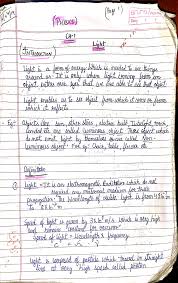 Physics
Page 1
CH-1
Light
Introduction
Light is a form of energy which is needed to see things
around us. It is only when light coming from an
object enters our eyes that we are able to see that object
Light enables us to see object from which it comes or from
which it reflects
Eg:- Objects like sun, other stars, electric bulb, tubelight, torch,
candle etc. are called luminous object. Those object which
do not emit light by themselves are called Non-
luminous object. For eg: Chair, table, flower etc.
Definition
Light → It is an electromagnetic radiation which do not
require any material medium for their
propagation. The wavelength of visible light is from
Speed of light is given by 3×10⁸ m/s which is very high
and remains constant for vacuum
Speed of light = Wavelength × frequency
Light is composed of particles which travel in straight
line at very high speed called photon